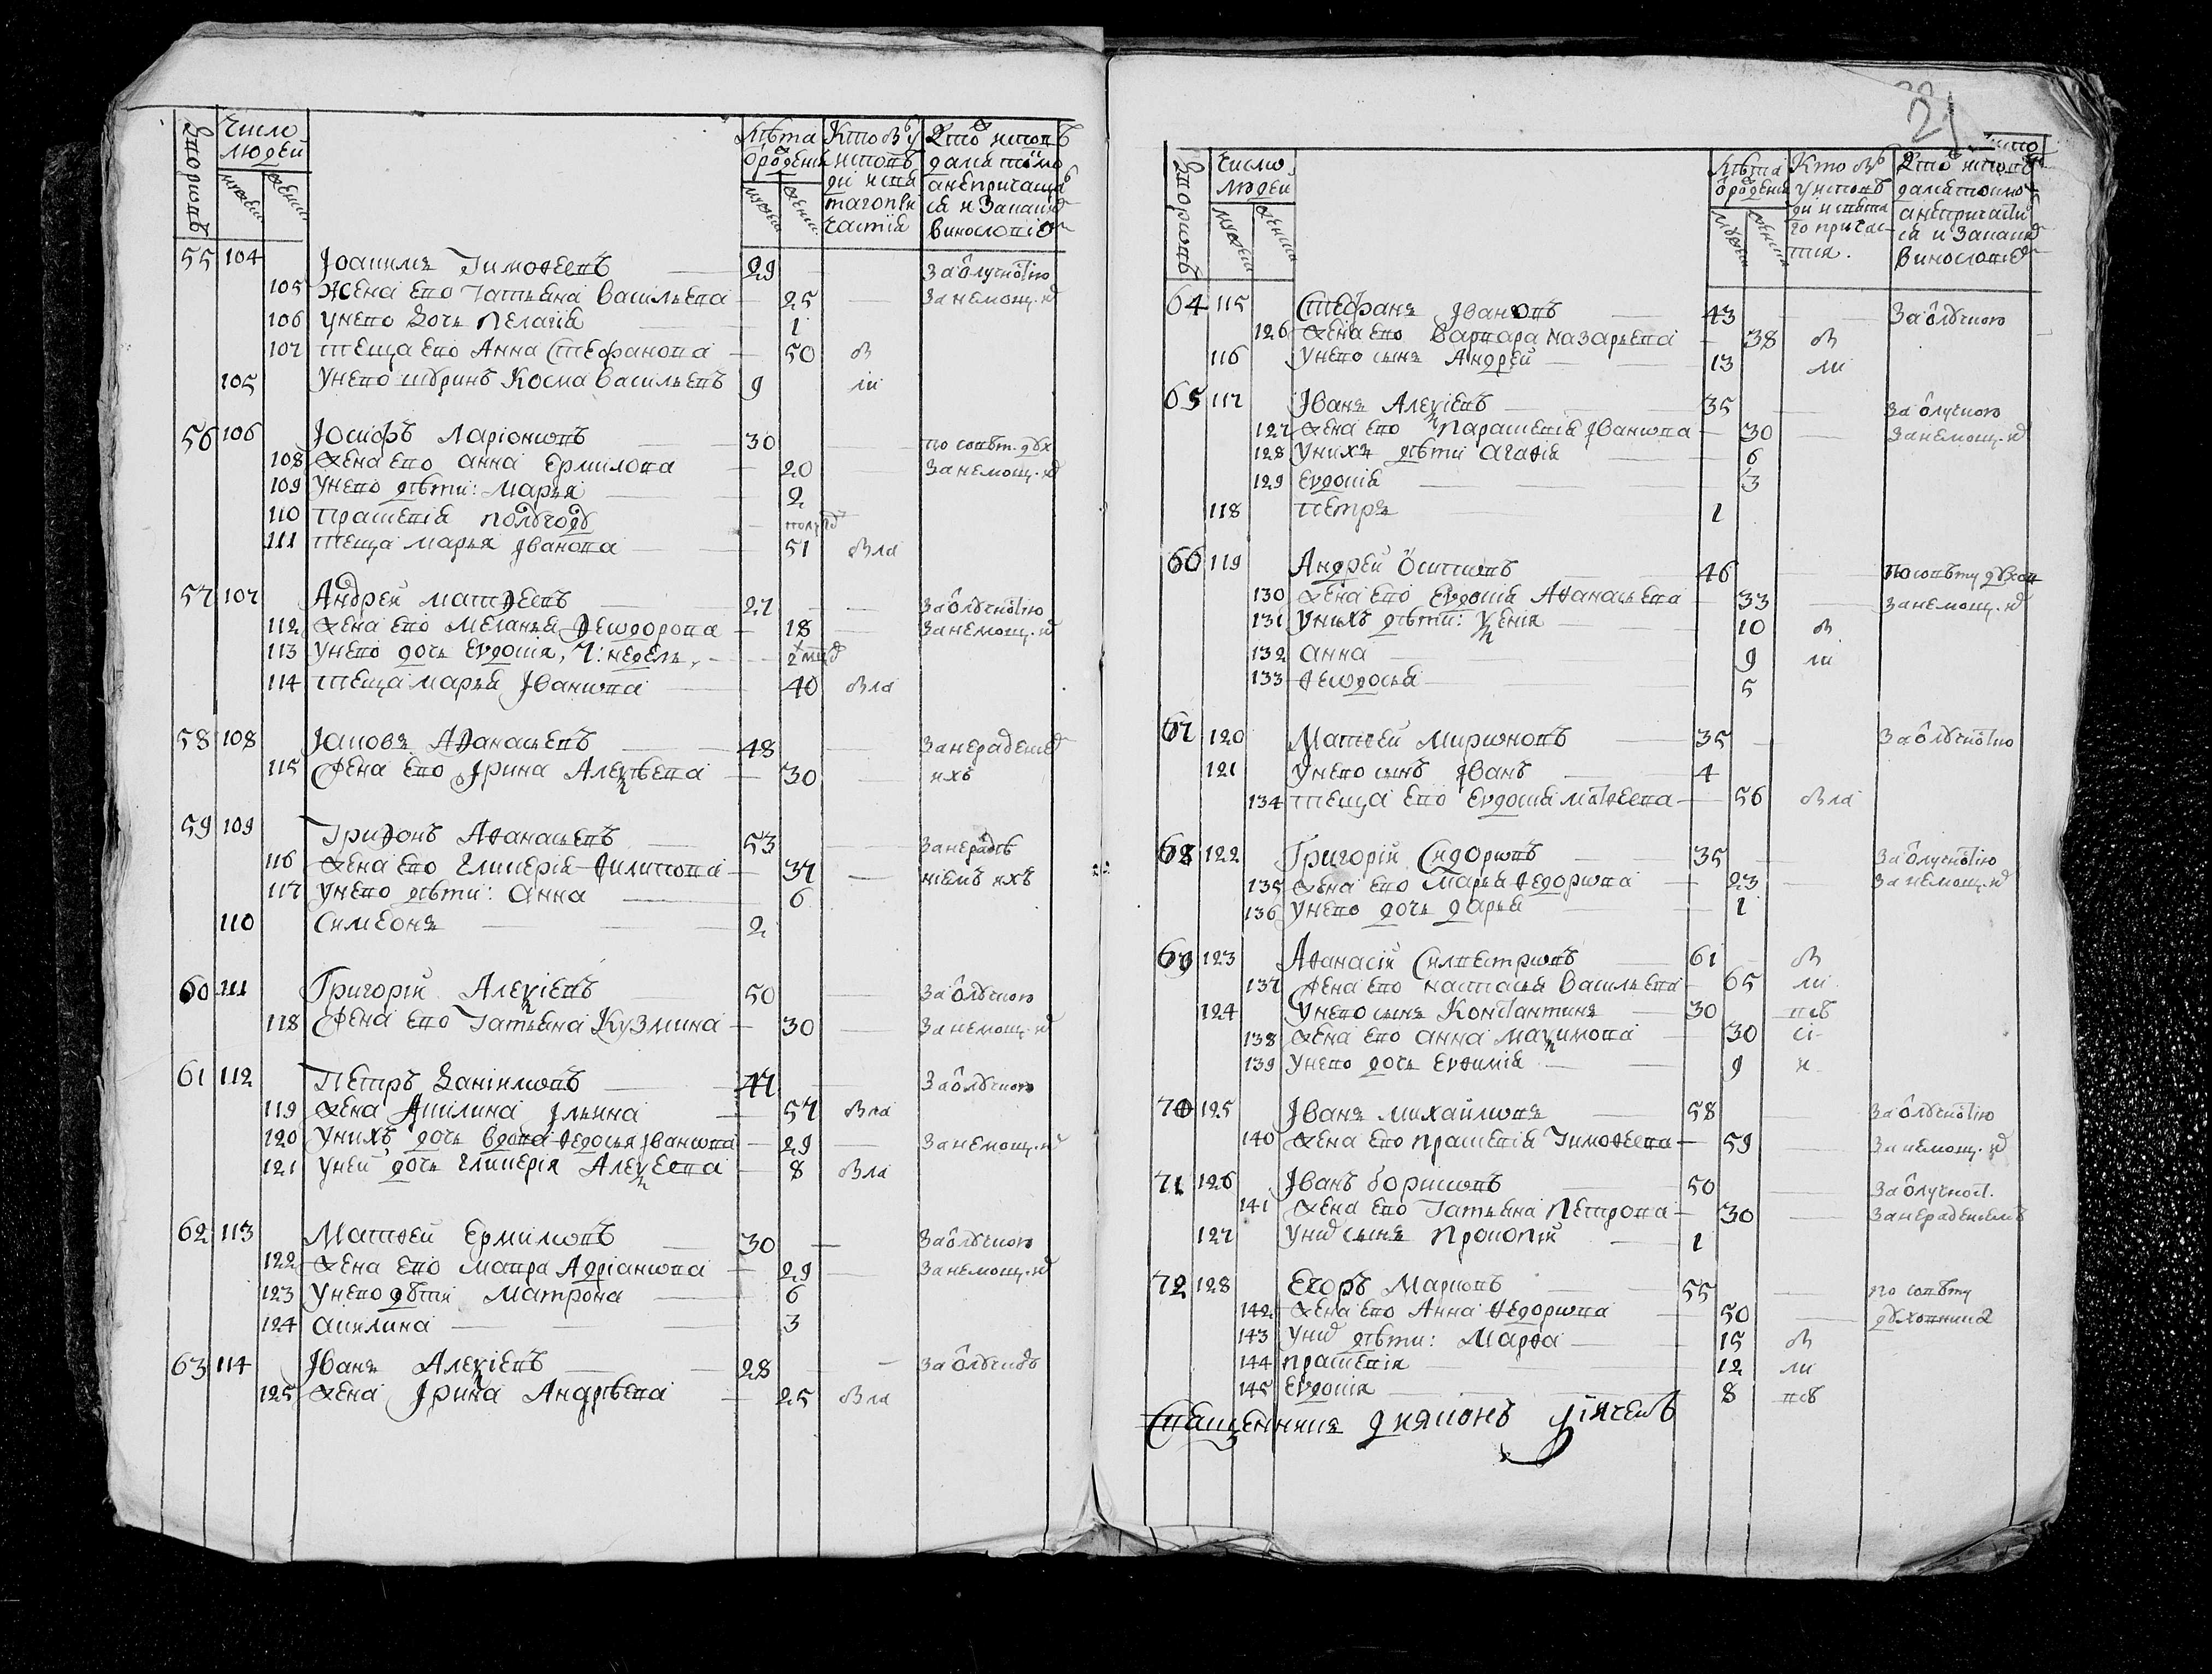 Число людей
мужеск женск
Дворовъ
Лѣта от рожден
мужеск женск
Кто был у исповѣди и святаго причастия
Кто исповѣдался токмо а не причащался и за каким винословием
55 104 Іоакимъ Тимофеевъ 29 за отлучностию
105 Жена его Татьяна Васильева 25 за немощ.
106 У него дочь Пелагія 1
107 Теща его Анна Стефанова 50 б
105 У него шуринъ Косма Васильевъ 9 ли
56 106 Іосифъ Ларіоновъ 30 по совѣт. дух
108 Жена его Анна Ермилова 20 за немощ.
109 У него дѣти: Марья 2
110 Прасковія полугоду полугод
111 Теща Марья Іванова 51 была
57 107 Андрей Матфеевъ 27 за отлучностию
112 Жена его Меланья Феодорова 18 за немощ.
113 У него дочь Евдокия, 7: недель,
114 Теща Марья Іванова 40 была
58 108 Іаковъ Афанасьевъ 48 за нерадение
115 Жена его Ірина Алексѣева 30 ихъ
59 109 Трифонъ Афанасьевъ 53 за нерадѣ
116 Жена его Гликерія Филипова 37 ніемъ ихъ
117 У него дѣти: Анна 6
110 Симеонъ 2
60 111 Григорій Алексіевъ 50 за отлучною
118 Жена его Татьяна Кузмина 30 за немощ.
61 112 Петръ Даніиловъ 47 за отлучною
119 Жена Акилина Ільина 57 была
120 У нихъ дочь вдова Федосья Іванова 29 за немощ.
121 У ней дочь Гликерія Алексеева 8 была
62 113 Матфей Ермиловъ 30 за отлучною
122 Жена его Мавра Адріанова 29 за немощ.
123 У него дѣти Матрона 6
124 Акилина 3
63 114 Іванъ Алексіевъ 28 за отлучно
125 Жена Ірина Андрѣева 25 была
21
Число людей
мужеск женск
Дворовъ
Лѣта от рожден
мужеск женск
Кто был у исповѣди и святаго причастия.
64 115 Стефанъ Івановъ 43 за отлучною
126 Жена его Варвара Назарьева 38 бы
116 У него сынъ Андрей 13 ли
65 117 Іванъ Алексіевъ 35 за отлучною
127 Жена его Парасковія Іванова 30 за немощ.
128 У нихъ дѣти Агафія 6
129 Евдокія 3
118 Петръ 1
66 119 Андрей Осиповъ 46 по совѣту духов
130 Жена его Евдокія Афанасьева 33 за немощ.
131 У нихъ дѣти: Ксенія 10 бы
132 Анна 9 ли
133 Феодосья 5
67 120 Матфей Мироновъ 35 за отлучностию
121 У него сынъ Іванъ 4
134 Теща его Евдокія Матфеева 56 была
68 122 Григорій Сидоровъ 35 за отлучностию
135 Жена его Марья Федорова 23 за немощ.
136 У него дочь Дарья 1
69 123 Афанасій Силвестровъ 61 бы
137 Жена его Настасья Васильева 65 ли
124 У него сынъ Константинъ 30 всѣ
138 Жена его Анна Максимова 30
139 У него дочь Евфимія 9
70 125 Іванъ Михайловъ 58 за отлучностию
140 Жена его Прасковія Тимофеева 59 за немощ.
71 126 Іванъ Борисовъ 50 за отлучност.
141 Жена его Татьяна Петрова 30 за нерадением
127 У них сынъ Прокопій 1
72 128 Егоръ Марковъ 55 по совѣту
142 Жена его Анна Федорова 50 духовника
143 У них дѣти: Марфа 15 бы
144 Прасковія 12 ли
145 Евдокія 8 всѣ
Священникъ